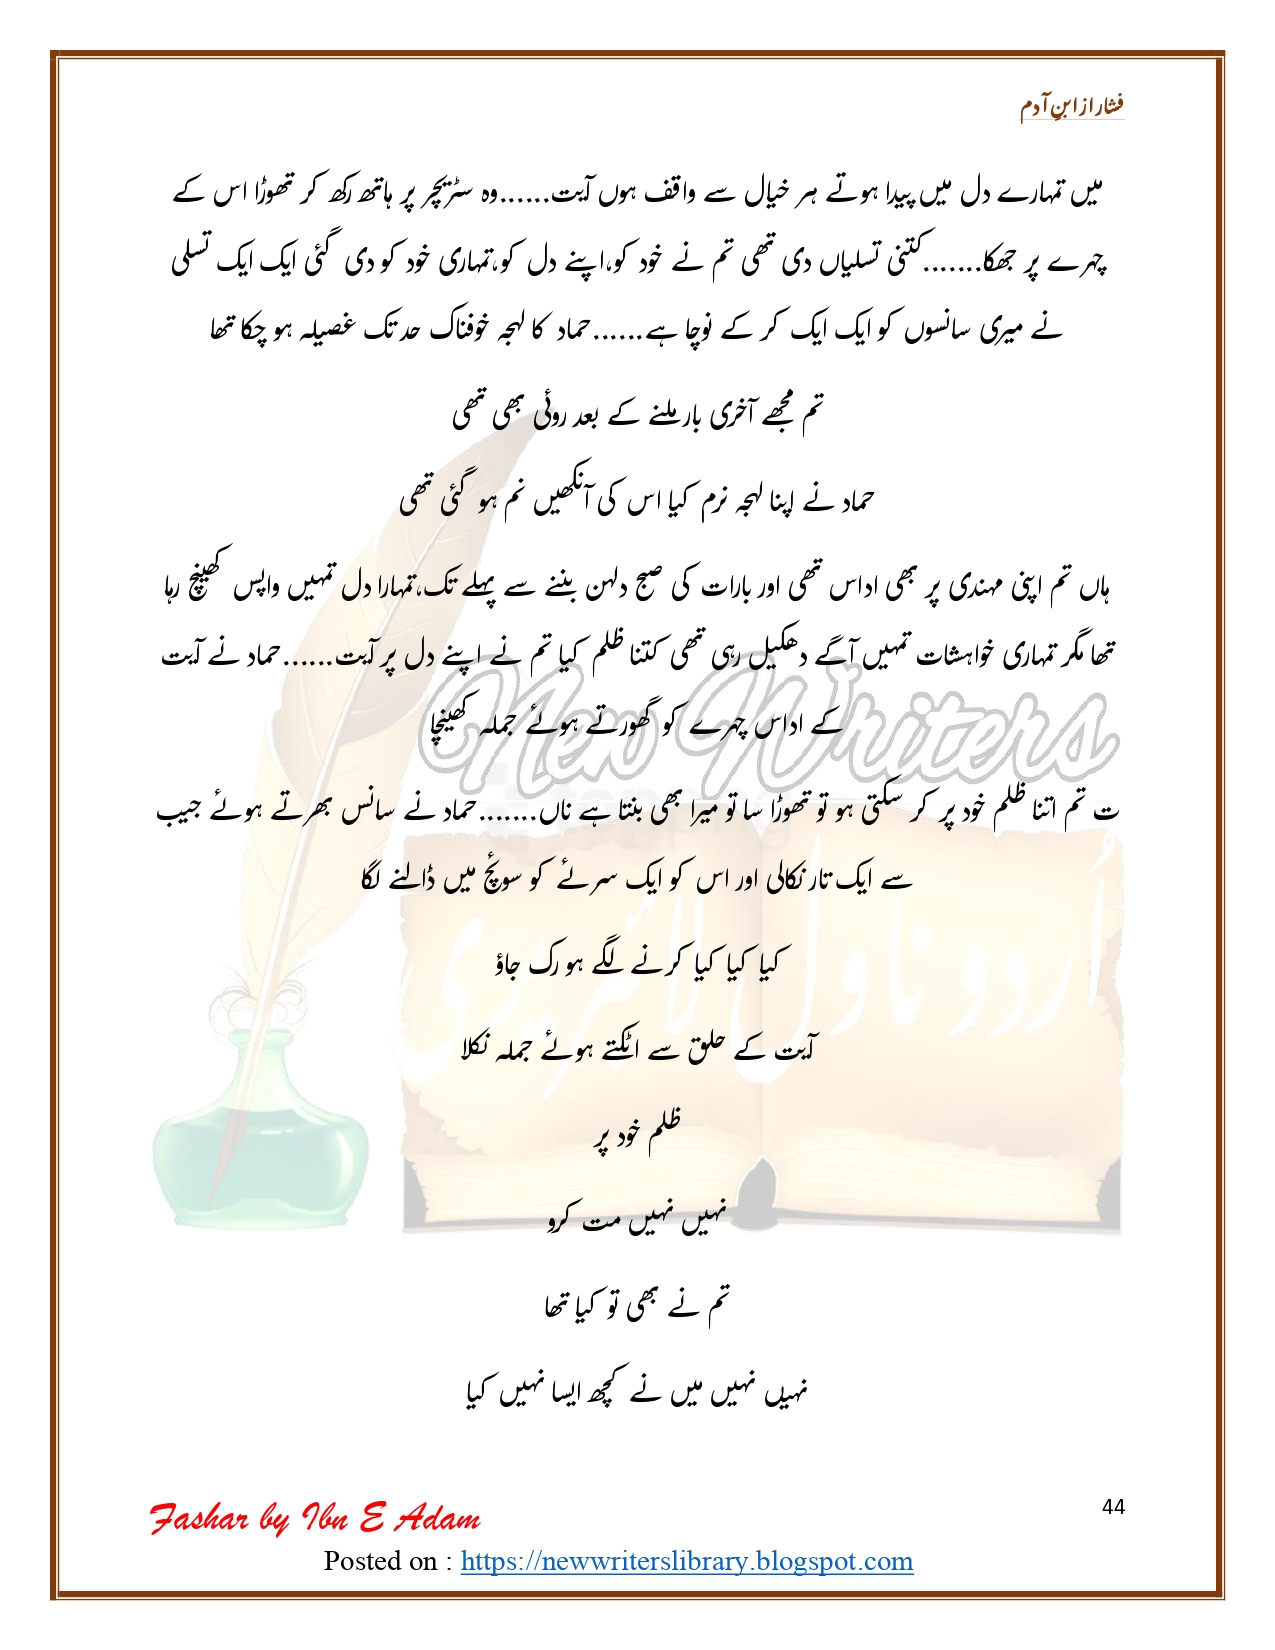 فشار از ابنِ آدم
میں تمہارے دل میں پیدا ہوتے ہر خیال سے واقف ہوں آیت......وہ سٹریچر پر ہاتھ رکھ کر تھوڑا اس کے
چہرے پر جھکا.......کتنی تسلیاں دی تھی تم نے خود کو،اپنے دل کو،تمہاری خود کو دی گئی ایک ایک تسلی
نے میری سانسوں کو ایک ایک کر کے نوچا ہے......حماد کا لہجہ خوفناک حد تک غصیلہ ہو چکا تھا
تم مجھے آخری بار ملنے کے بعد روئی بھی تھی
حماد نے اپنا لہجہ نرم کیا اس کی آنکھیں نم ہو گئی تھی
ہاں تم اپنی مہندی پر بھی اداس تھی اور بارات کی صبح دلہن بننے سے پہلے تک،تمہارا دل تمہیں واپس کھینچ رہا
تھا مگر تمہاری خواہشات تمہیں آگے دھکیل رہی تھی کتنا ظلم کیا تم نے اپنے دل پر آیت......حماد نے آیت
کے اداس چہرے کو گھورتے ہوئے جملہ کھینچا
New Writers
ت تم اتنا ظلم خود پر کر سکتی ہو تو تھوڑا سا تو میرا بھی بنتا ہے ناں.......حماد نے سانس بھرتے ہوئے جیب
سے ایک تار نکالی اور اس کو ایک سرئے کو سوئچ میں ڈالنے لگا
اُردو ناول لائبریری
کیا کیا کیا کرنے لگے ہو رک جاؤ
آیت کے حلق سے اٹکتے ہوئے جملہ نکلا
ظلم خود پر
نہیں نہیں مت کرو
تم نے بھی تو کیا تھا
نہیں نہیں میں نے کچھ ایسا نہیں کیا
44
Fashar by Ibn E Adam
Posted on : https://newwriterslibrary.blogspot.com